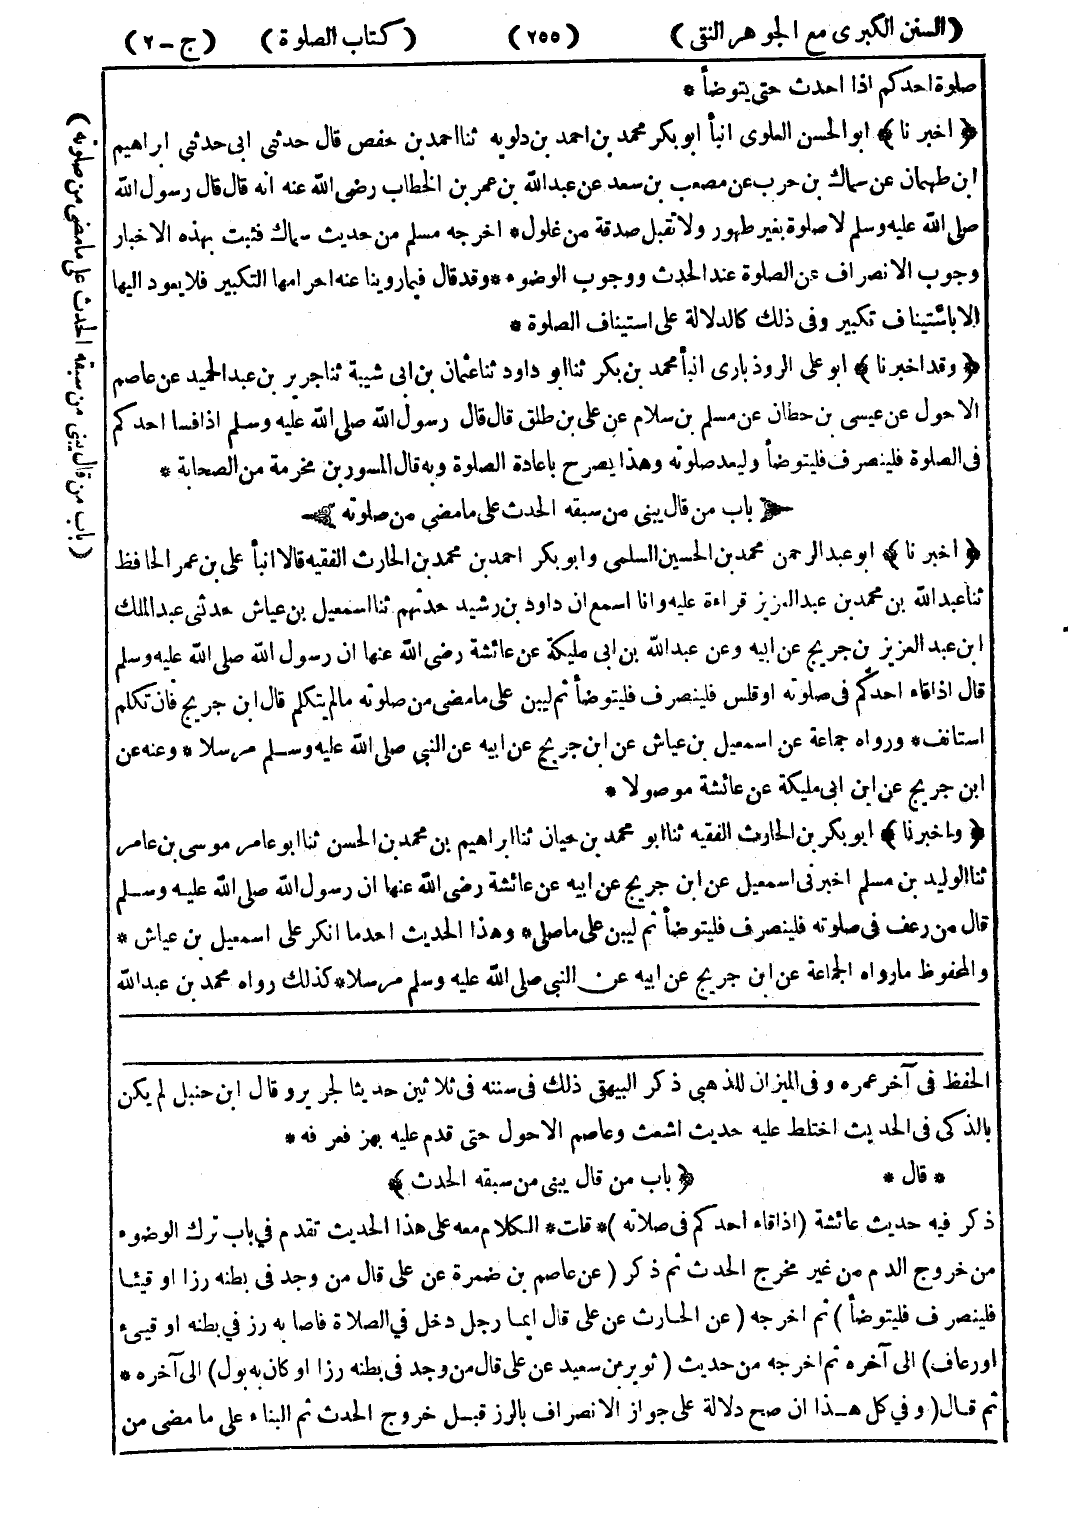 (السنن الكبرى مع الجوهر النقى) (٢٥٥) (كتاب الصلوة) (ج-٢)
صلوة احدكم اذا احدث حتى يتوضأ *
﴿اخبرنا﴾ ابو الحسن العلوى انبأ ابو بكر محمد بن احمد بن دلويه ثنا احمد بن حفص قال حدثنى ابى حدثنى ابراهيم
ابن طهمان عن سماك بن حرب عن مصعب بن سعد عن عبدالله بن عمر بن الخطاب رضى الله عنه انه قال قال رسول الله
صلى الله عليه وسلم لا صلوة بغير طهور ولا تقبل صدقة من غلول * اخرجه مسلم من حديث سماك فثبت بهذه الاخبار
وجوب الانصراف عن الصلوة عند الحدث ووجوب الوضوء * وقد قال فيما روينا عنه احرامها التكبير فلا يعود اليها
الا باستيناف تكبير وفى ذلك كالدلالة على استيناف الصلوة *
﴿وقد اخبرنا﴾ ابو على الروذبارى انبأ محمد بن بكر ثنا ابو داود ثنا عثمان بن ابى شيبة ثنا جرير بن عبد الحميد عن عاصم
الاحول عن عيسى بن حطان عن مسلم بن سلام عن على بن طلق قال قال رسول الله صلى الله عليه وسلم اذا فسا احدكم
فى الصلوة فلينصرف فليتوضأ وليعد صلوته وهذا يصرح باعادة الصلوة وبه قال المسور بن مخرمة من الصحابة *
باب من قال يبنى من سبقه الحدث على ما مضى من صلوته
﴿اخبرنا﴾ ابو عبد الرحمن محمد بن الحسين السلمى وابو بكر احمد بن محمد بن الحارث الفقيه قالا انبأ على بن عمر الحافظ
ثنا عبدالله بن محمد بن عبد العزيز قراءة عليه وانا اسمع ان داود بن رشيد حدثهم ثنا اسمعيل بن عياش حدثنى عبد الملك
ابن عبد العزيز بن جريج عن ابيه وعن عبدالله بن ابى مليكة عن عائشة رضى الله عنها ان رسول الله صلى الله عليه وسلم
قال اذا قاء احدكم فى صلوته او قلس فلينصرف فليتوضأ ثم ليبن على ما مضى من صلوته ما لم يتكلم قال ابن جريج فان تكلم
استانف * ورواه جماعة عن اسمعيل بن عياش عن ابن جريج عن ابيه عن النبى صلى الله عليه وسلم مرسلا * وعنه عن
ابن جريج عن ابن ابى مليكة عن عائشة موصولا *
﴿واخبرنا﴾ ابو بكر بن الحارث الفقيه ثنا ابو محمد بن حيان ثنا ابراهيم بن محمد بن الحسن ثنا ابو عامر موسى بن عامر
ثنا الوليد بن مسلم اخبرنى اسمعيل عن ابن جريج عن ابيه عن عائشة رضى الله عنها ان رسول الله صلى الله عليه وسلم
قال من رعف فى صلوته فلينصرف فليتوضأ ثم ليبن على ما صلى * وهذا الحديث احد ما انكر على اسمعيل بن عياش *
والمحفوظ ما رواه الجماعة عن ابن جريج عن ابيه عن النبى صلى الله عليه وسلم مرسلا * كذلك رواه محمد بن عبدالله
الحفظ فى آخر عمره وفى الميزان للذهبى ذكر البيهقى ذلك فى سننه فى ثلاثين حديثا لجرير وقال ابن حنبل لم يكن
بالذكى فى الحديث اختلط عليه حديث اشعث وعاصم الاحول حتى قدم عليه بهز فعرفه *
* قال * ﴿باب من قال يبنى من سبقه الحدث﴾
ذكر فيه حديث عائشة (اذا قاء احدكم فى صلاته) * قلت * الكلام معه على هذا الحديث تقدم فى باب ترك الوضوء
من خروج الدم من غير مخرج الحدث ثم ذكر (عن عاصم بن ضمرة عن على قال من وجد فى بطنه رزا او قيئا
فلينصرف فليتوضأ) ثم اخرجه (عن الحارث عن على قال ايما رجل دخل فى الصلاة فاصابه رز فى بطنه او قيىء
او رعاف) الى آخره ثم اخرجه من حديث (ثوير بن سعيد عن على قال من وجد فى بطنه رزا او كان به بول) الى آخره *
ثم قال (وفى كل هذا ان صح دلالة على جواز الانصراف بالرز قبل خروج الحدث ثم البناء على ما مضى من
(باب من قال يبنى من سبقه الحدث على ما مضى من صلوته)